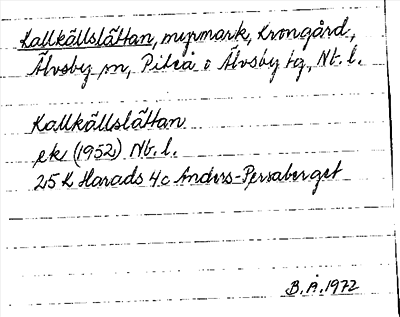 Kallkällslåttan, myrmark, Krongård,
Älvsby sn, Piteå o Älvsby tg, Nb. l.
Kallkällslåttan
ek (1952) Nb. l.
25 K Harads 4c Anders-Persaberget
B. Å. 1972